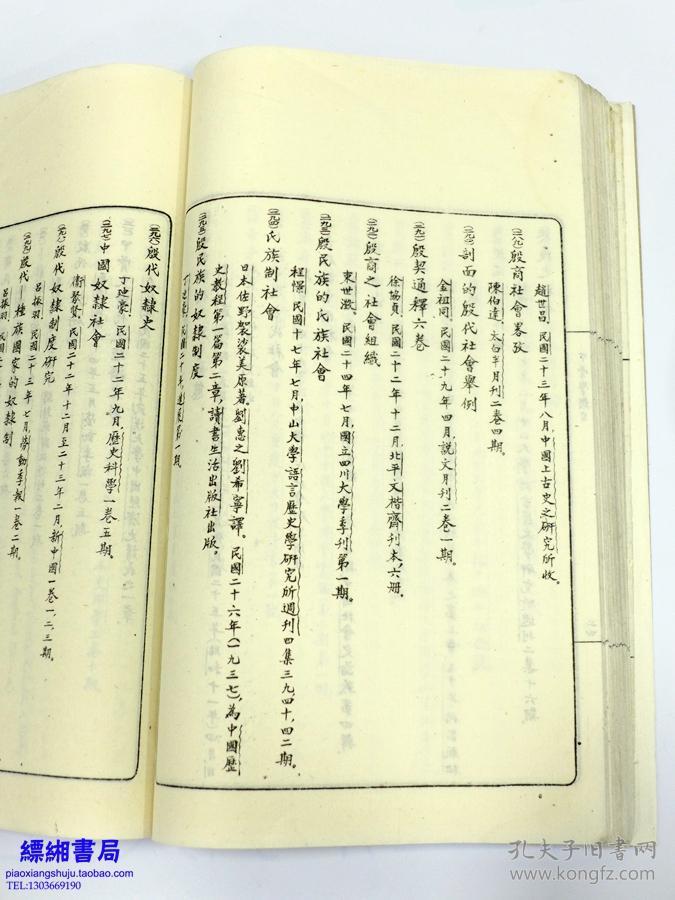 趙世昌，民國二十三年八月，中國上古史之研究所收。
(二八九)殷商社會畧攷
陳伯達，太白半月刊二卷四期。
剖面的殷代社會舉例
金祖同，民國二十九年四月，說文月刊二卷一期。
殷契通釋六卷
徐協貞，民國二十二年十二月，北平文楷齋刊本，六冊。
殷商之社會組織
束世澂，民國二十四年七月，國立四川大學季刊第一期。
(二九三)殷民族的氏族社會
程憬，民國十七年七月，中山大學語言歷史學研究所週刊四集三九，四十，四二期。
(二九四)氏族制社會
日本佐野袈裟美原著，劉惠之劉希寧譯。民國二十六年(一九三七)，為中國歷
史教程第一篇第二章，讀書生活出版社出版。
(二九五)殷民族的奴隸制度
丁迪豪，民國二十年，進展第一期。
(二九六)殷代奴隸史
丁迪豪，民國二十二年九月，歷史科學一卷五期。
(二九七)中國奴隸社會
衛聚賢，民國二十二年十二月至二十三年二月，新中國一卷一，二，三期。
(二九八)殷代奴隸制度研究
呂振羽，民國二十三年七月，勞動季報一卷二期。
(二九九)殷代——種族國家的奴隸制
呂振羽，民國
縹緗書局
piaoxiangshuju.taobao.com
TEL:1303669190
孔夫子旧書网
www.kongfz.com